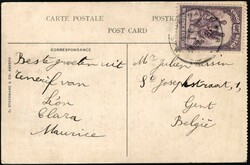 CARTE POSTALE
POST CARD
CORRESPONDANCE
Beste groeten uit
Tenerif van
Léon
Clara
Maurice
Mr Julien
St Josephstraat, 1
Gent
België